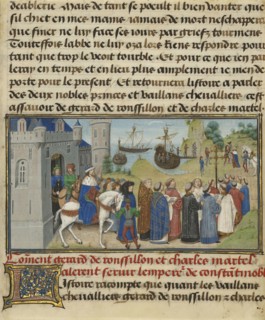 decablerie. Mais de tant se poeult il bien vanter que
sil chiet en mes mains iamais de mort neschappera
que finer ne luy face ses iours par griefz tourmens
Toutesfois labbe ne luy oza lors riens respondre pour
tant que trop le veoit trouble. Et pour ce que ien par
leray en temps et en lieu plus amplement ie men de
porte pour le present. Et retourneray listoire a parler
des deux nobles princes et vaillans chevalliers cest
assavoir de gerard de roussillon et de charles martel
Coment gerard de roussillon et charles martel
alerent servir lempere de constantinoble
Listoire racompte que quant les vaillans
chevalliers gerard de roussillon et charles